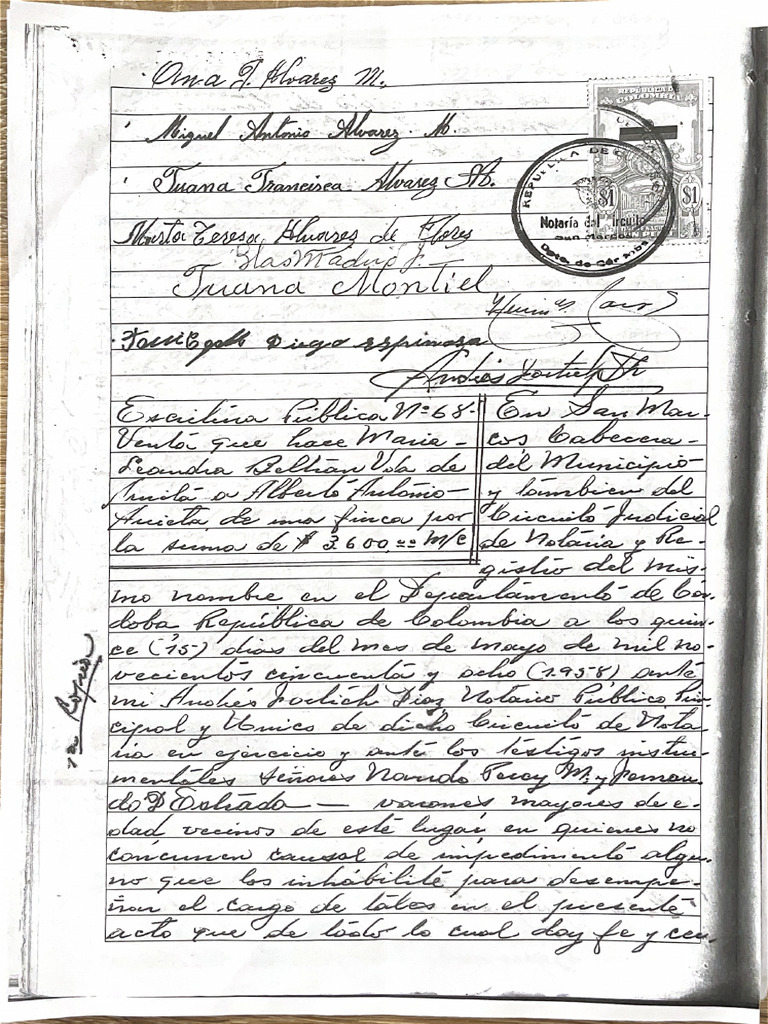 Ana T. Alvarez M.,
Miguel Antonio Alvarez. M.
Juana Francisca Alvarez M.
Marta Teresa Alvares de Flores
Juana Montiel
Diego espinosa
REPUBLICA DE
COLOMBIA
$1
$1
UN PESO
REPUBLICA DE
Notaría del ircuito
San Marcos
Dpto. de Córdoba
Escritura Pública Nº 68-
Venta que hace Maria
Leandra Beltrán Vda de
a Alberto Antonio
de una finca por
la suma de $ 3.600,00 M/C
En San Mar-
cos Cabecera
del Municipio
y tambien del
Circuito Judicial
de Notaria y Re-
gistro del mis-
mo nombre en el Departamento de Cór-
doba República de Colombia a los quin-
ce (15) dias del mes de mayo de mil no-
vecientos cincuenta y ocho (1.958) ante
mi Andrés Diaz Notario Público Prin-
cipal y Unico de dicho Circuito de Nota-
ria en ejercicio y ante los testigos instru-
mentales Señores Nando M. y Fernan-
do D Estrada — varones mayores de e-
dad vecinos de este lugar en quienes no
concurren causal de impedimento algu-
no que los inhabilite para desempe-
ñar el cargo de tales en el presente
acto que de todo lo cual doy fe y cer-
1a Copia